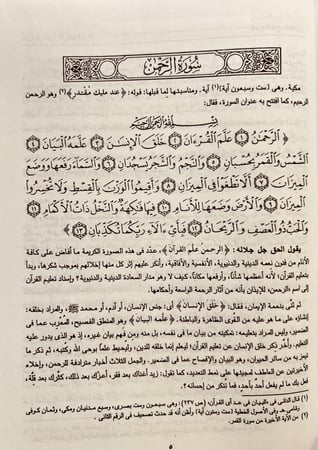 سُورَةُ الرَّحْمٰنِ
مكية. وهى [ست وسبعون آية](١) آية. ومناسبتها لما قبلها: قوله: ﴿عند مليك مقتدر﴾(٢) وهو الرحمن
الرحيم، كما افتتح به عنوان السورة، فقال:
بِسْمِ اللَّهِ الرَّحْمَٰنِ الرَّحِيمِ
﴿ الرَّحْمَٰنُ ۝١ عَلَّمَ الْقُرْءَانَ ۝٢ خَلَقَ الْإِنسَٰنَ ۝٣ عَلَّمَهُ الْبَيَانَ ۝٤
الشَّمْسُ وَالْقَمَرُ بِحُسْبَانٍ ۝٥ وَالنَّجْمُ وَالشَّجَرُ يَسْجُدَانِ ۝٦ وَالسَّمَاءَ رَفَعَهَا وَوَضَعَ
الْمِيزَانَ ۝٧ أَلَّا تَطْغَوْا فِي الْمِيزَانِ ۝٨ وَأَقِيمُوا الْوَزْنَ بِالْقِسْطِ وَلَا تُخْسِرُوا
الْمِيزَانَ ۝٩ وَالْأَرْضَ وَضَعَهَا لِلْأَنَامِ ۝١٠ فِيهَا فَٰكِهَةٌ وَالنَّخْلُ ذَاتُ الْأَكْمَامِ ۝١١
وَالْحَبُّ ذُو الْعَصْفِ وَالرَّيْحَانُ ۝١٢ فَبِأَيِّ ءَالَاءِ رَبِّكُمَا تُكَذِّبَانِ ۝١٣ ﴾
يقول الحق جل جلاله: ﴿الرحمنُ علّم القرآن﴾، عدّد فى هذه السورة الكريمة ما أفاض على كافة
الأنام من فنون نعمه الدينية والدنيوية، الأنفسية والآفاقية، وأنكر عليهم إثر كل منها إخلالهم بموجب شكرها، وبدأ
بتعليم القرآن؛ لأنه أعظمها شأناً، وأرفعها مكاناً، كيف لا وهو مدار السعادة الدينية والدنيوية؟ وإسناد تعليم القرآن
إلى اسم الرحمن؛ للإيذان بأنه من آثار الرحمة الواسعة وأحكامها.
ثم ثنى بنعمة الإيمان، فقال: ﴿خلق الإنسان﴾ أى: جنس الإنسان، أو آدم، أو محمد ﷺ، والمراد بخلقه:
إنشائه على ما هو عليه من القوى الظاهرة والباطنة. ﴿علّمه البيان﴾ وهو المنطق الفصيح، المعرب عما فى
الضمير، وليس المراد بتعليمه: تمكينه من بيان ما فى نفسه، بل منه ومن فهم بيان غيره، إذ هو الذى يدور عليه
التعليم. وأخّر ذكر خلق الإنسان عن تعليم القرآن؛ ليعلم إنما خلقه للدين، وليحيط علماً بوحى الله وكتبه، ثم ذكر ما
تميز به من سائر الحيوان، وهو البيان والإفصاح عما فى الضمير. والجمل الثلاث أخبار مترادفة للرحمن، وإخلاء
الأخيرتين عن العاطف لمجيئها على نمط التعديد، كما تقول: زيد أغناك بعد فقر، أعزك بعد ذلك، كثرك بعد قلّة،
فعل بك ما لم يفعل أحد بأحد، فما تنكر من إحسانه؟.
(١) قال الدانى فى «البيان فى عد آى القرآن» (ص ٢٣٧): «وهى سبعون وست بصرى، وسبع مدنيان ومكى، وثمان كوفى
وشامى». وفى الأصول الخطية [ومانت وستون آية] وأظن أنه قد حدث تصحيف فى الرقم الثانى.
(٢) من الآية الأخيرة من سورة القمر.
٥